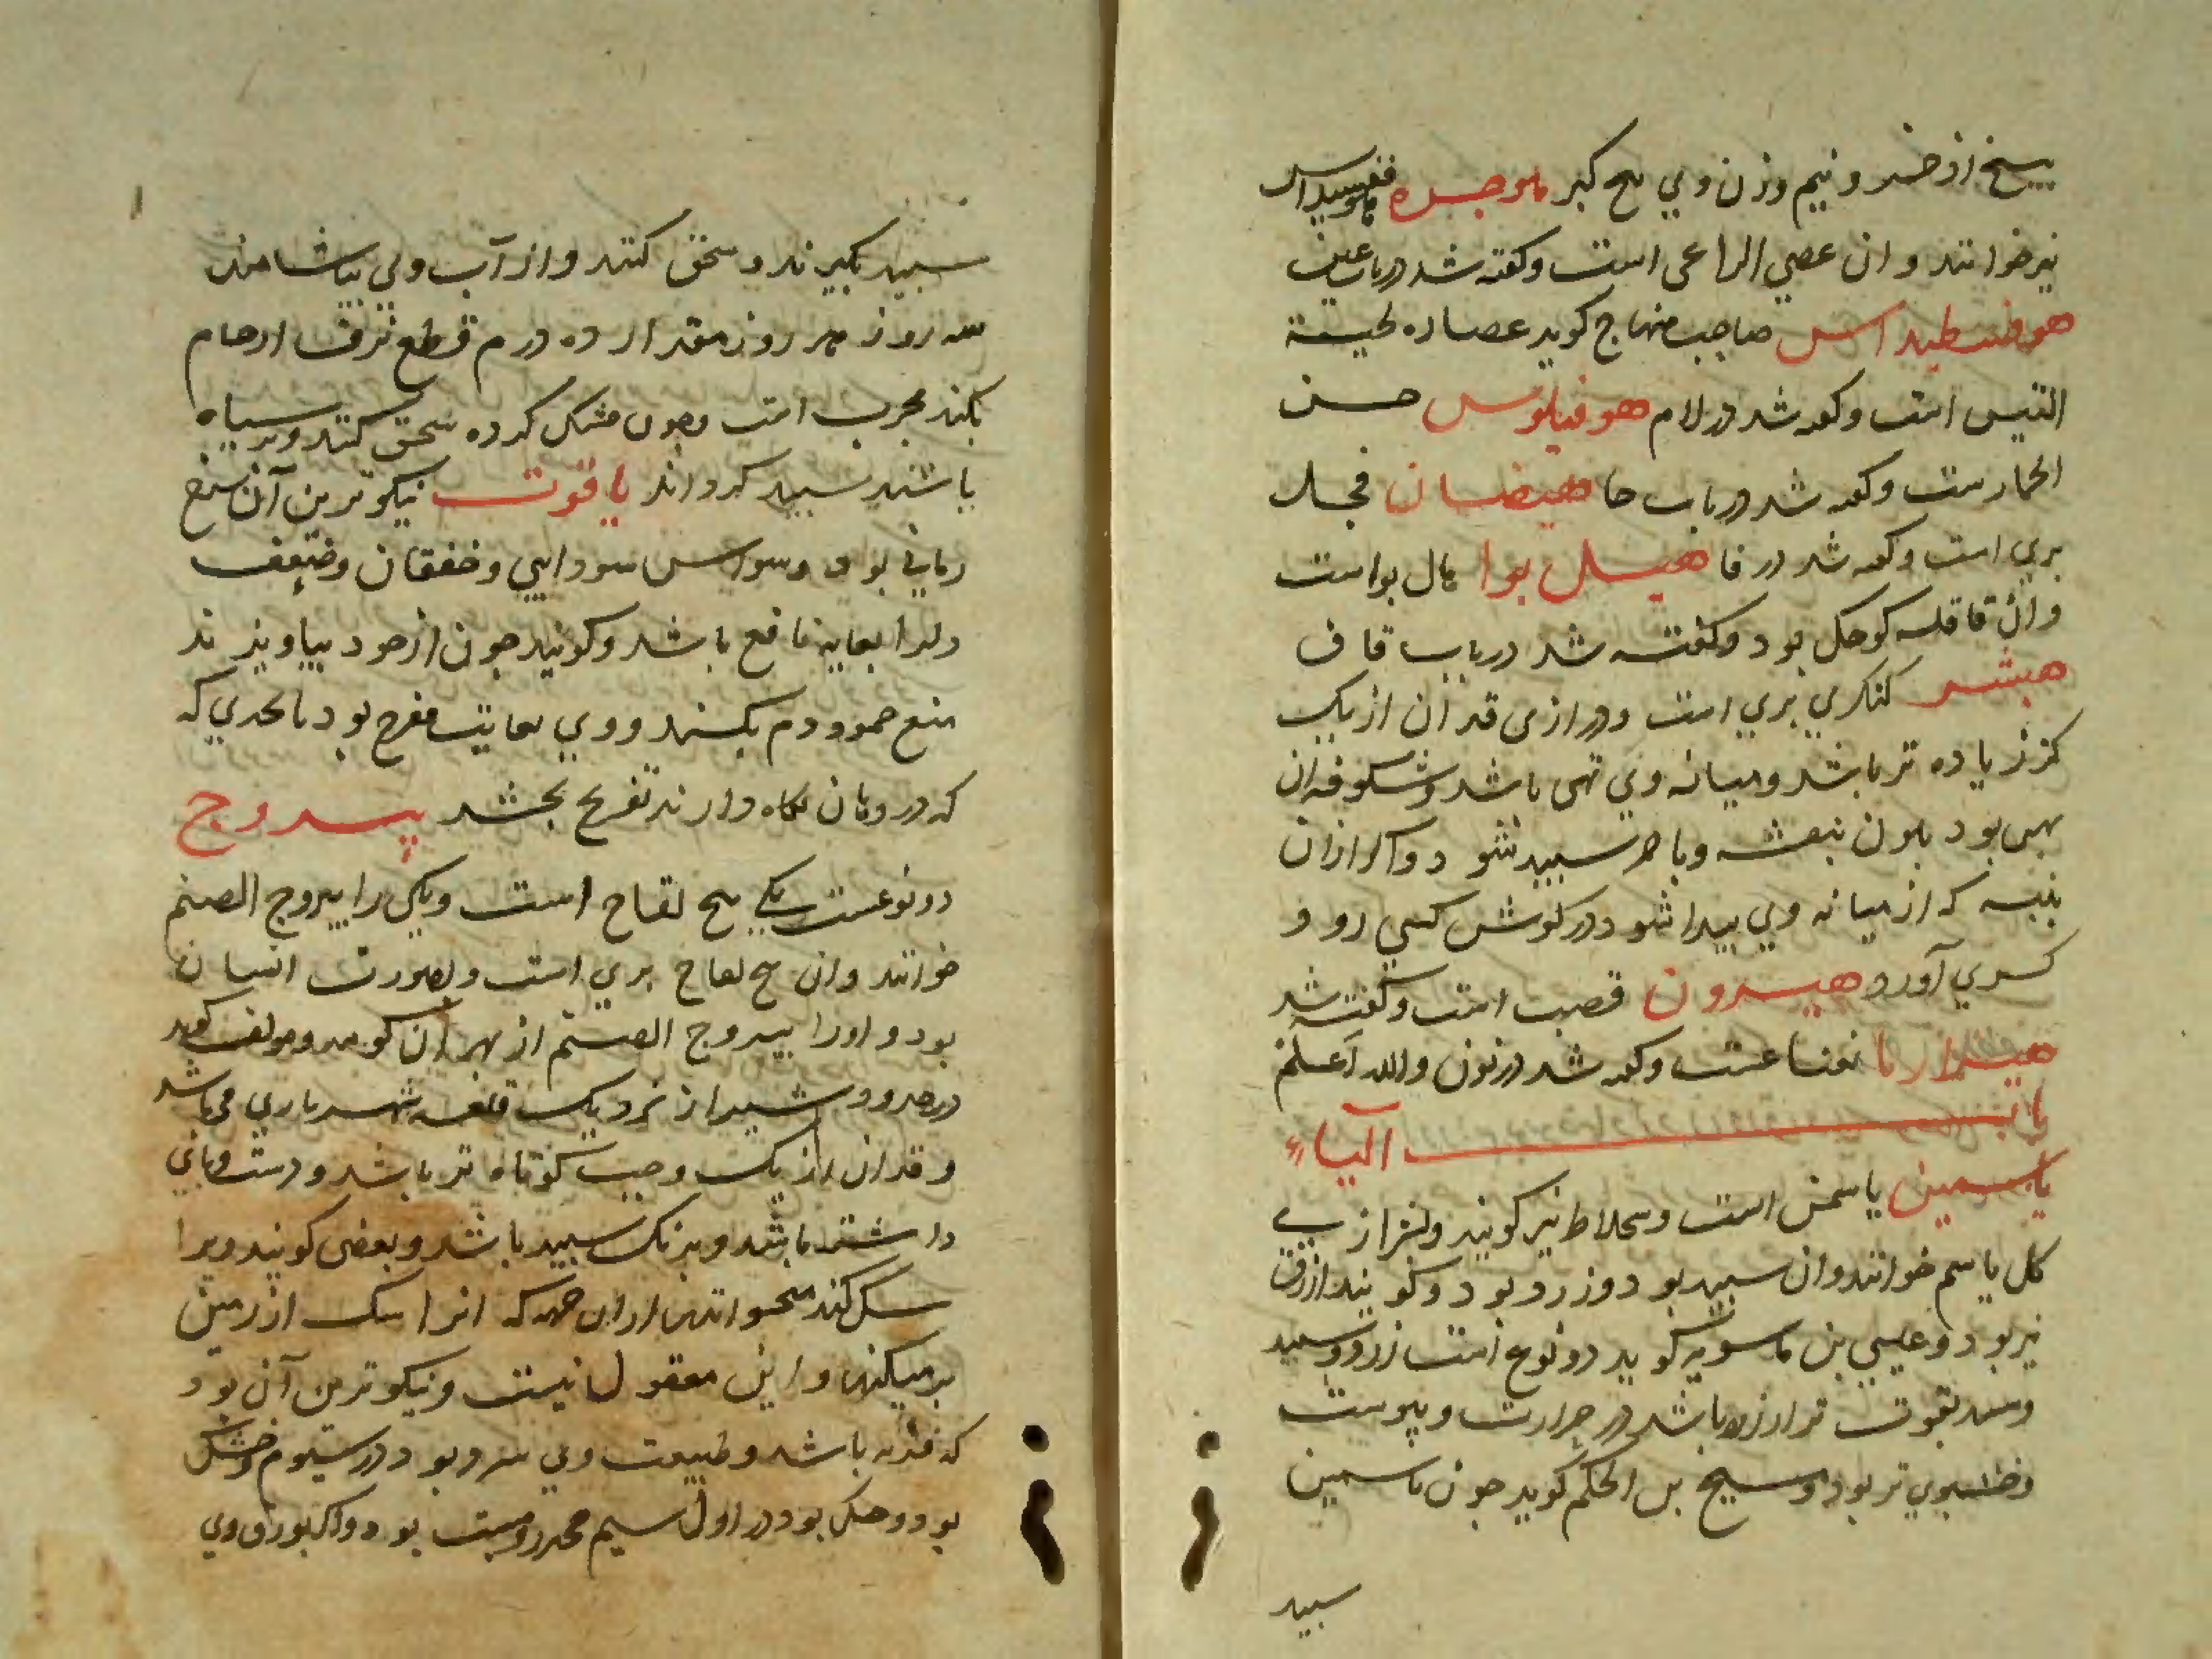 بیخ اذخر و نیم وزن وی بیخ کبر هوجره
نیز خوانند و ان عصی الراعی است و کفته شد در باب عین
هوفسطیداس صاحب منهاج کوید عصاره لحیة
التیس است و کفته شد در لام هوفیلوس خس
الحمارست و کفته شد در باب خا هیضسان فجل
بری است و کفته شد در فا هیل بوا هال بواست
وان قاقله کوچک بود و کفته شد در باب قاف
هیشر کنکری بری است و درازی قد ان از یک
کز زیاده تر باشد و میانه وی تهی باشد و شکوفه ان
بهن بود بلون بنفشه و باخر سبید شود و اکر ازان
بنبه که از میانه وی بیدا شود در کوش کسی رود
کری آورد هیرون قصب است و کفته شد
نعناعست و کفته شد در نون والله اعلم
باب الیاء
یاسمین یاسمن است و سجلاط نیز کویند و شیرازیی
کل یاسم خوانند وان سبید بود و زرد بود و کویند ازرق
نیز بود و عیسی بن ماسویه کوید دو نوع است زرد و سبید
و سبید بقوت تر از زرد باشد در حرارت و یبوست
و خشبوی تر بود و مسیح بن الحکم کوید جون یاسمین
سبید
سبید بکیرند و سحق کنند و از آب وی بیاشامند
سه روز هر روز مقدار ده درم قطع نزف ارحام
بکند مجرب است و جون خشک کرده سحق کنند و بر سیاه
باشند سبید کرداند یاقوت نیکوترین آن سرخ
رمانی بود وسواس سودایی و خفقان و ضعف
دلرا بغایه نافع باشد و کویند جون از خود بیاویزند
منع جمود دم بکند و وی بغایت مفرح بود تا بحدی که
که در دهان نکاه دارند تفریح بخشد یبروج
دو نوعست یکی بیخ لفاح است و یکی را یبروج الصنم
خوانند وان بیخ لفاح بری است و بصورت انسان
بود و اورا یبروج الصنم از بهر آن کویند و مولف کوید
در حدود شیراز نزدیک قلعه شهریاری می باشد
و قد ان از یک وجب کوتاه تر باشد و دست و بائی
داشته باشد و برنک سبید باشد و بعضی کویند ویرا
سک کند میخوانند ازان جهه که انرا سک از زمین
برمیکند و این معقول نیست و نیکوترین آن بود
که فربه باشد و طبیعت وی سرد بود در سیوم و خشک
بود و خشک بود در اول سیم مخدر و مسبت بود و اکر بورق وی